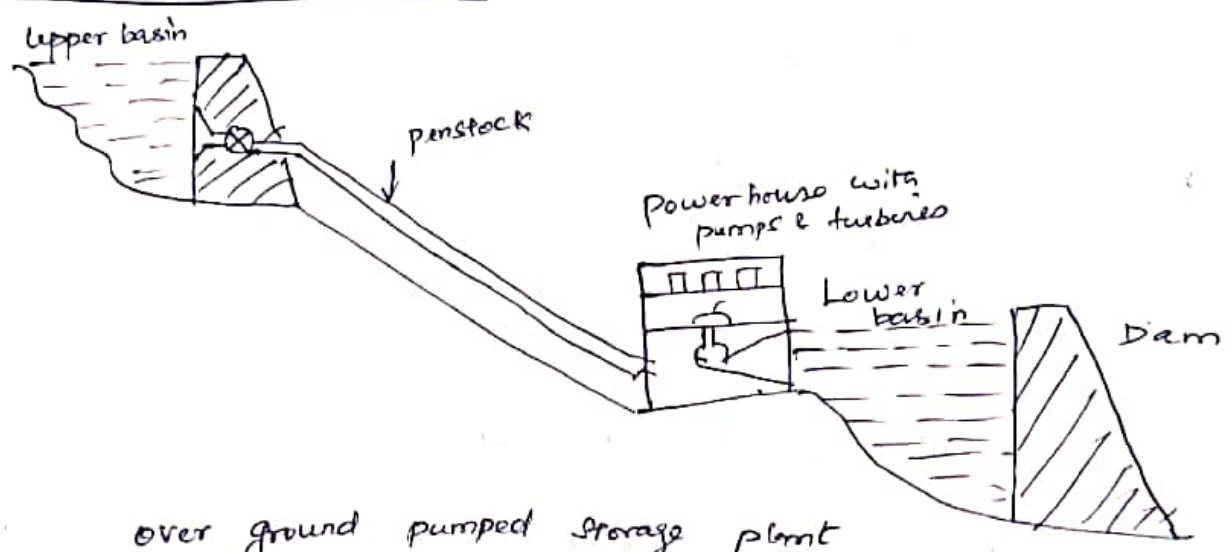 Upper basin
penstock
Powerhouse with
pumps & turbines
Lower
basin
Dam
over ground pumped storage plant